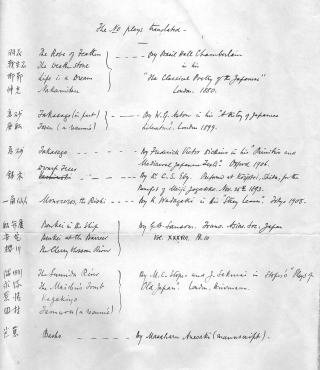 The Nō plays translated —
羽衣 The Robe of Feathers — — — By Basil Hall Chamberlain
殺生石 The Death-stone in his
邯鄲 Life is a Dream "The Classical Poetry of the Japanese"
仲光 Nakamitsu London. 1880.
高砂 Takasago (in part) — — By W.G. Aston in his "History of Japanese
Literature", London 1899.
高砂 Takasago — By Frederick Victor Dickins in his "Primitive and
Mediaeval Japanese Texts" Oxford 1906.
鉢木 Dwarf Trees
一角仙人 — By K. Wadagaki in his "Stray Leaves" Tokyo 1908.
船弁慶 Benkei in the Ship — By G.B. Sansom. Trans. Asiatic Soc. Japan
安宅 Benkei at the Barrier Vol. XXXVIII, Pt. III
桜川 The Cherry blossom River
隅田川 The Sumida River — By M.C. Stopes and J. Sakurai in Stopes's "Plays of
求塚 The Maiden's Tomb Old Japan". London, Heinemann.
景清 Kagekiyo
田村 Tamura (a resumé)
芭蕉 Basho — — — By Masaharu Anesaki (manuscript).